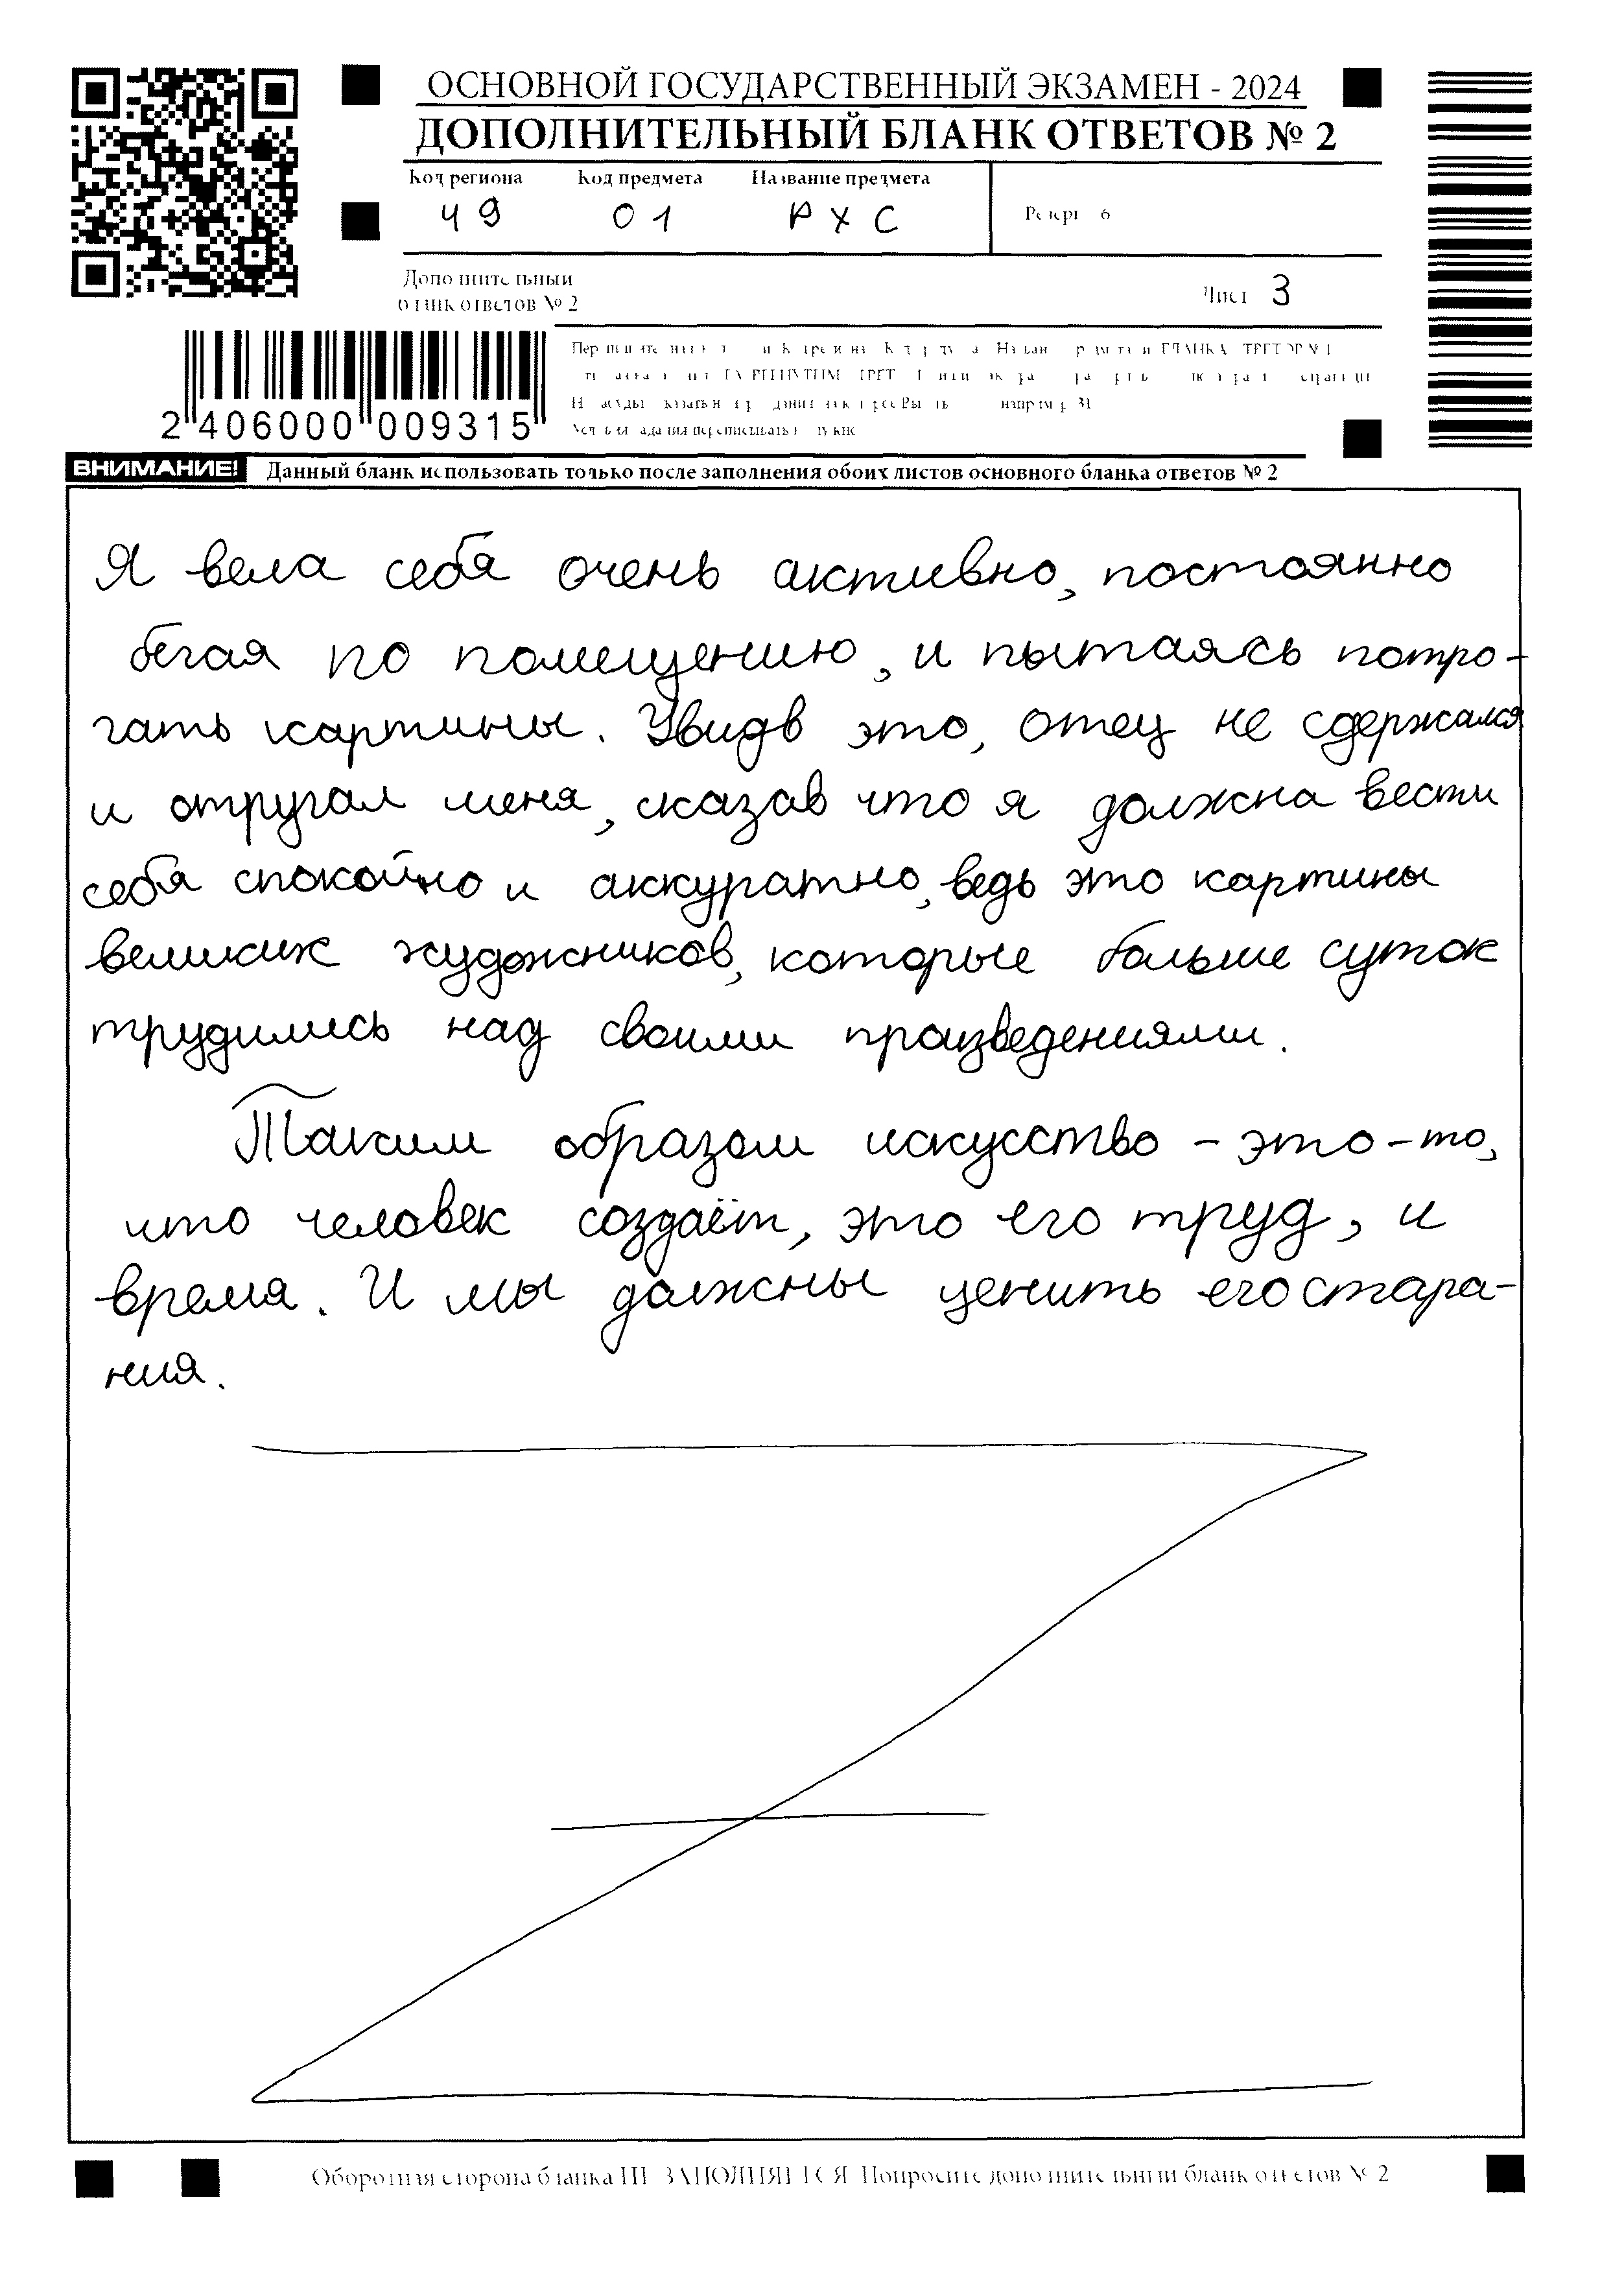 ОСНОВНОЙ ГОСУДАРСТВЕННЫЙ ЭКЗАМЕН - 2024
ДОПОЛНИТЕЛЬНЫЙ БЛАНК ОТВЕТОВ № 2
Код региона Код предмета Название предмета
49 01 РХС
Резерв 6
Дополнительный
бланк ответов № 2
Лист 3
2 406000 009315
ВНИМАНИЕ! Данный бланк использовать только после заполнения обоих листов основного бланка ответов № 2
Я вела себя очень активно, постоянно
бегая по помещению, и пытаясь потро-
гать картины. Увидв это, отец не сдержался
и отругал меня, сказав что я должна вести
себя спокойно и аккуратно, ведь это картины
великих художников, которые больше суток
трудились над своими произведениями.
Таким образом искусство - это - то,
что человек создаёт, это его труд, и
время. И мы должны ценить его стара-
ния.
Оборотная сторона бланка НЕ ЗАПОЛНЯЕТСЯ Попросите дополнительный бланк ответов № 2